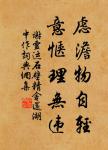 慮澹物自輕
意愜理無違
謝靈運石壁精舍還湖
中作詞典網集